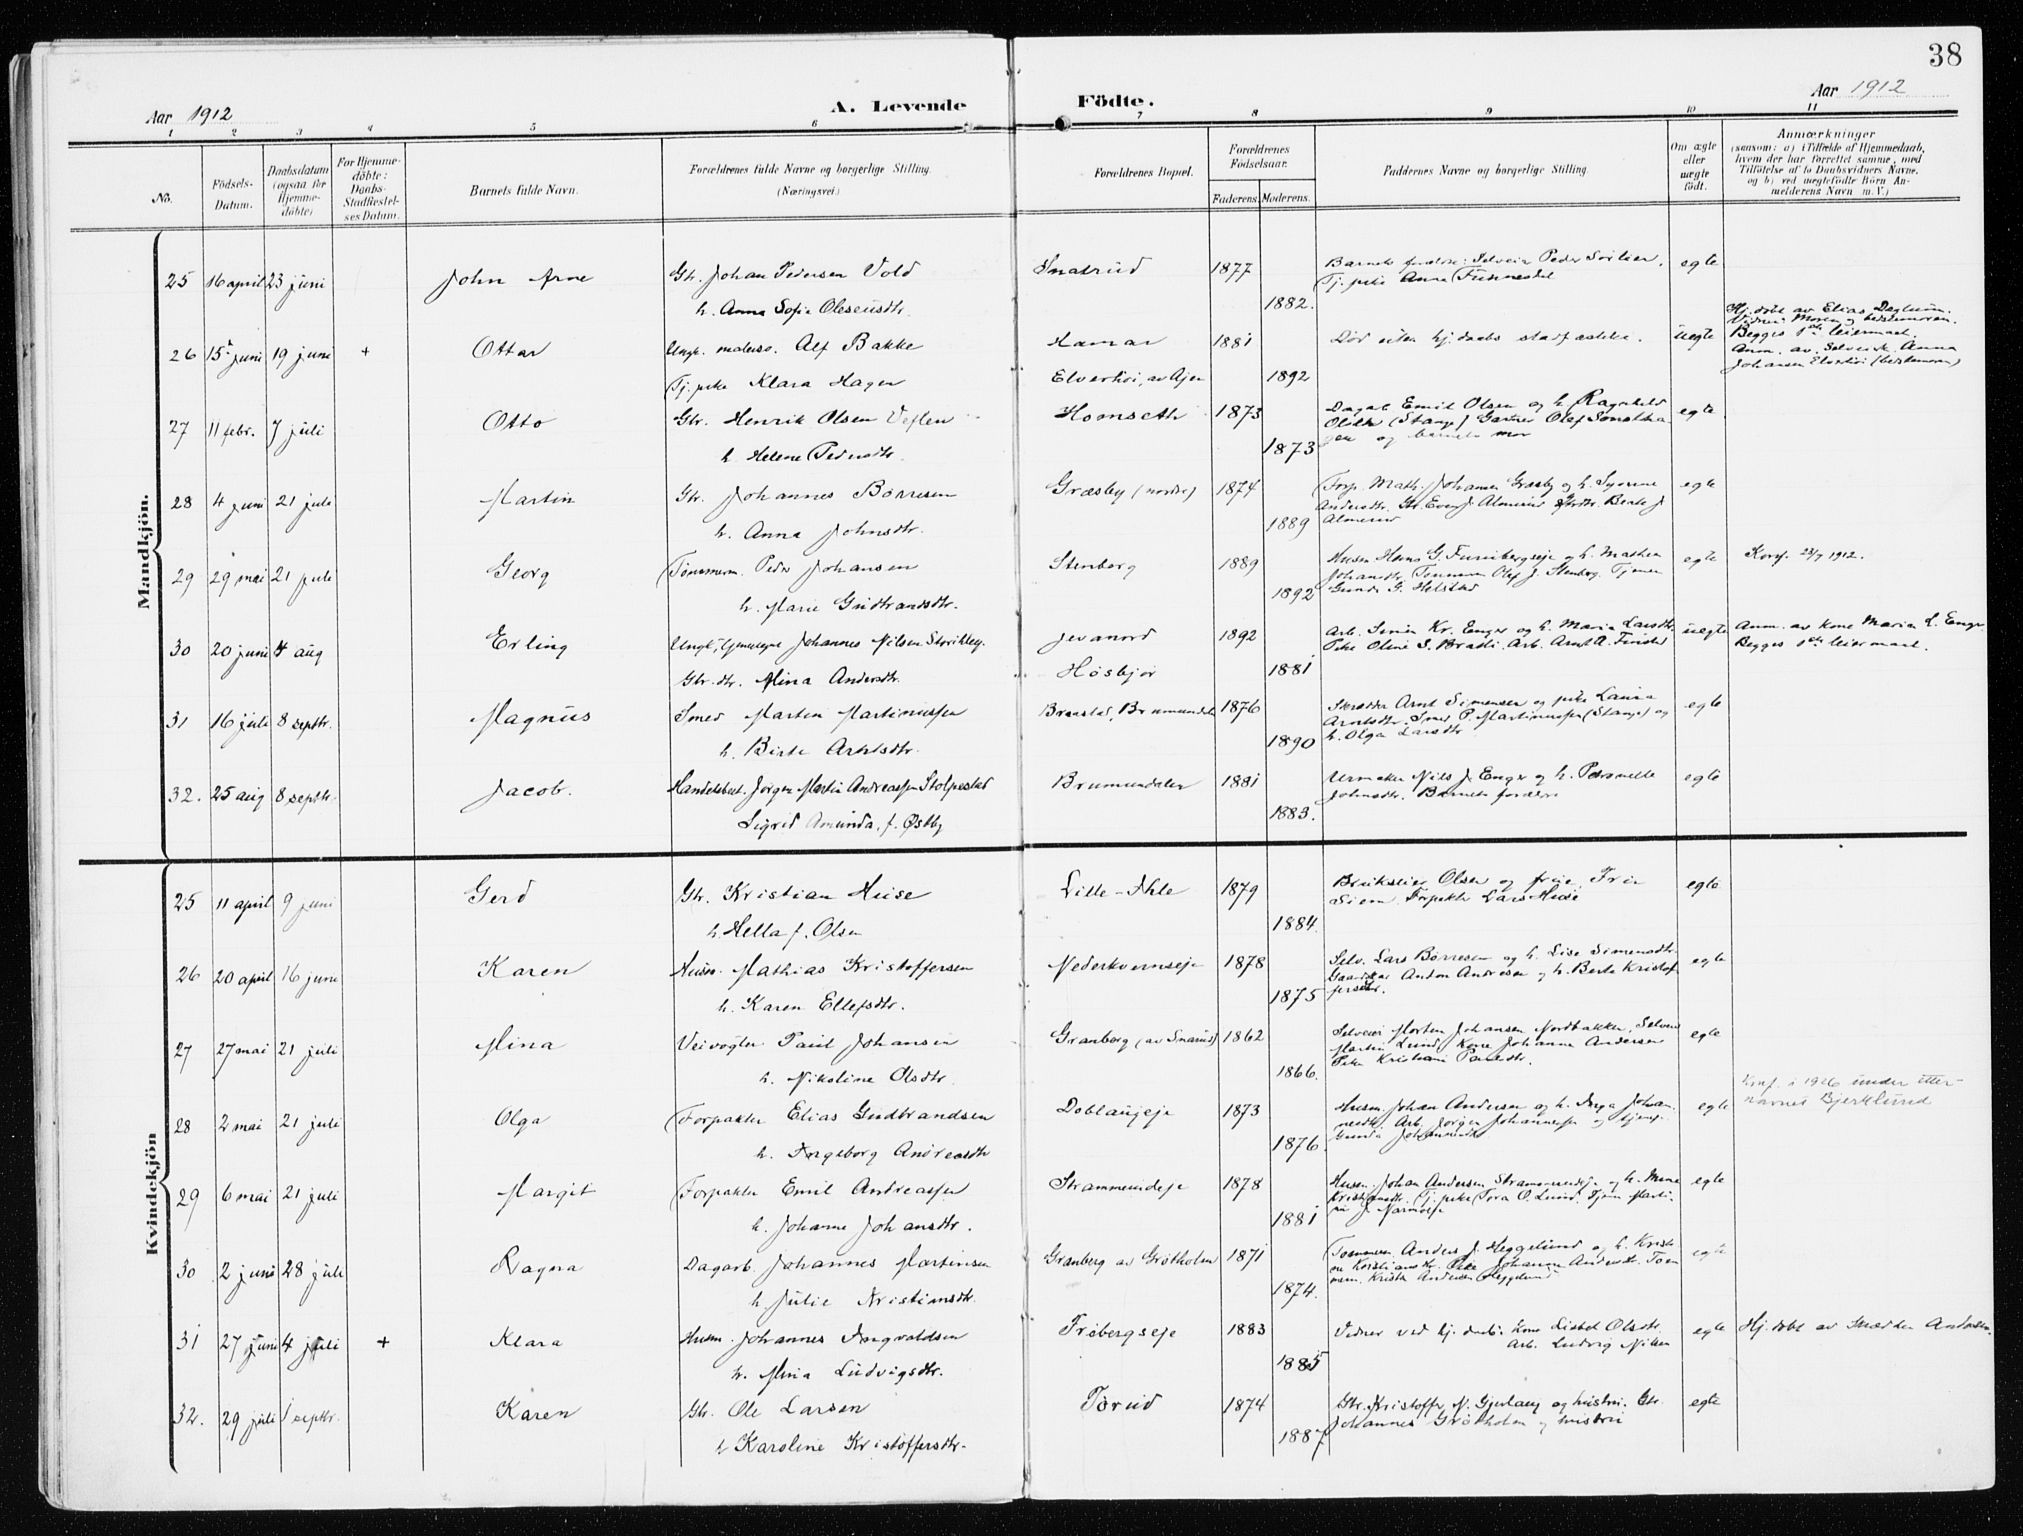 38
Aar 1912
A. Levende
Födte.
Aar 1912
1 2 3 4 5 6 7 8 9 10 11
No.
Födsels-Datum.
Daabsdatum (ogsaa for Hjemme-döbte)
For Hjemme-döbte: Daabs-Stadfæstel-ses Datum.
Barnets fulde Navn.
Forældrenes fulde Navne og borgerlige Stilling (Næringsvei)
Forældrenes Bopæl.
Forældrenes Födselsaar.
Faderens. Moderens.
Faddernes Navne og borgerlige Stilling
Om ægte eller uægte født.
Anmærkninger (saasom: a) i Tilfælde af Hjemmedaab, hvem der har forrettet samme, med Tilföielse af to Daabsvidners Navne, og b) ved uægtefödte Börn An-melderens Navn m. V.)
Mandkjön.
25 16 april 23 juni John Arne Gbr. Johan Pedersen Vold Snarud 1877 egte
h. Anna Sofie Olesensdtr. 1882.
Tj. pike Anna
26 15 juni 19 juni + Ottar Ungk. Alf Bakke Hamar 1881 Død uten hj. daabs stadfæstelse. uegte
Hj. døbt av Elias Døglum.
Vidner: Moren og bestemoren.
Begges 1ste leiermaal.
Anm. av Selveiersk. Anna
Johansen Elverhøi (bestemoren)
Tj. pike Klara Hagen Elverhøi, av Ajer 1892
27 11 febr. 7 juli Otto Gbr. Henrik Olsen Vejlen Homseth 1873 Dagarb. Emil Olsen og h. Ragnhild egte
h. Helene Pedersdtr. 1873 og barnets mor
28 4 juni 21 juli Martin Gbr. Johannes Børresen Græsby (nordre) 1874 Forp. Math. Johansen Græsby og h. egte
h. Anna Johnsdtr. 1889
29 29 mai 21 juli Georg Tømmerm. Peder Johansen Stenberg 1889 Husm. Hans G. Furubergseje og h. Mathea egte Konf. 23/7 1912.
h. Marie Gudbrandsdtr. 1892
Johansdtr. Tømmerm. Olaf J. Stenberg. Tjener
Gunda G. Helstad
30 20 juni 4 aug Erling Ungk. Johannes Nilsen Jevanord 1892 Arb. Simen Kr. Enger og h. Maria Larsdtr. uegte Anm. av kone Maria L. Enger
Gbr. dtr. Mina Andersdtr. Høsbjør 1881
Pike Oline S. Arb. Arnt A. Finstad
Begges 1ste leiermaal.
31 16 juli 8 septbr. Magnus Smed Martin Martiniussen Braastad, Brumundalen 1876 Skrædder Arnt Simensen og pike Laura egte
h. Birte Arntsdtr. 1890
Arntsdtr. Smed P. Martiniussen (Stange) og
h. Olga Larsdtr.
32. 25 aug 8 septbr. Jacob. Handelsbest. Jørgen Martin Andreassen Stolpestad Brumundalen 1881 Urmaker Nils J. Enger og h. Pernelle egte
Sigrid Amunda, f. Østby 1883.
Johnsdtr. Barnets forældre
Kvindekjön
25 11 april 9 juni Gerd Gbr. Kristian Huse Lille-Ihle 1879 egte
h. Hella f. Olsen 1884.
Forpakter Lars Huse
26 20 april 16 juni Karen Husm. Mathias Kristoffersen Nederkvernseje 1878 Selv. Lars Børresen og h. Lise Simensdtr. egte
h. Karen Ellefsdtr. 1875
Anton Andresen og h. Berte Kristof-
fersdtr.
27 27 mai 21 juli Mina Veivogter Paul Johansen Granberg (av Snarud) 1862 Selveier Morten Johansen Nordbakken, Selveier egte
h. Nikoline Olsdtr. 1866.
Martin Lund, Kone Johanne Andersen
Pike Kristiane Paulsdtr.
28 2 mai 21 juli Olga Forpakter Elias Gudbrandsen Doblaugeje 1873 Husm. Johan Andersen og h. Inga Johan- egte Knf. i 1926 under etter-
navnet Bjerklund
h. Ingeborg Andreasdtr 1876.
nesdtr. Arb. Jørgen Johannessen og tjenp.
Gunda Johannesdtr.
29 6 mai 21 juli Margit Forpakter Emil Andreassen Strammerudeje 1878 Husm. Johan Andersen Strammerudeje og h. Mina egte
h. Johanne Johansdtr. 1881
Kristiansdtr. Tj. pike Tora O. Lund. Tjener Marti-
30 2 juni 28 juli Ragna Dagarb. Johannes Martinsen Granberg av Grøtholm 1871 Tømmerm. Anders J. Heggelund og h. Kristi- egte
h. Julie Kristiansdtr. 1874.
ne Kristiansdtr. Pike Johanne Andersdtr. Tøm
merm. Krister Andersen Heggelund
31 27 juni 4 juli + Klara Husm. Johannes Ingvaldsen Frøbergseje 1883 Vidner ved hj. daab: Kone Lisbet Olsdtr. egte Hj. døbt av
h. Mina Ludvigsdtr. 1885
Arb. Ludvig Nilsen
32. 29 juli 1 septbr. Karen Gbr. Ole Larsen Torud 1874 Gbr. Kristoffer N. Gjerlaug og hustru. Gbr. egte
h. Karoline Kristoffersdtr. 1887.
Johannes Grøtholm og hustru